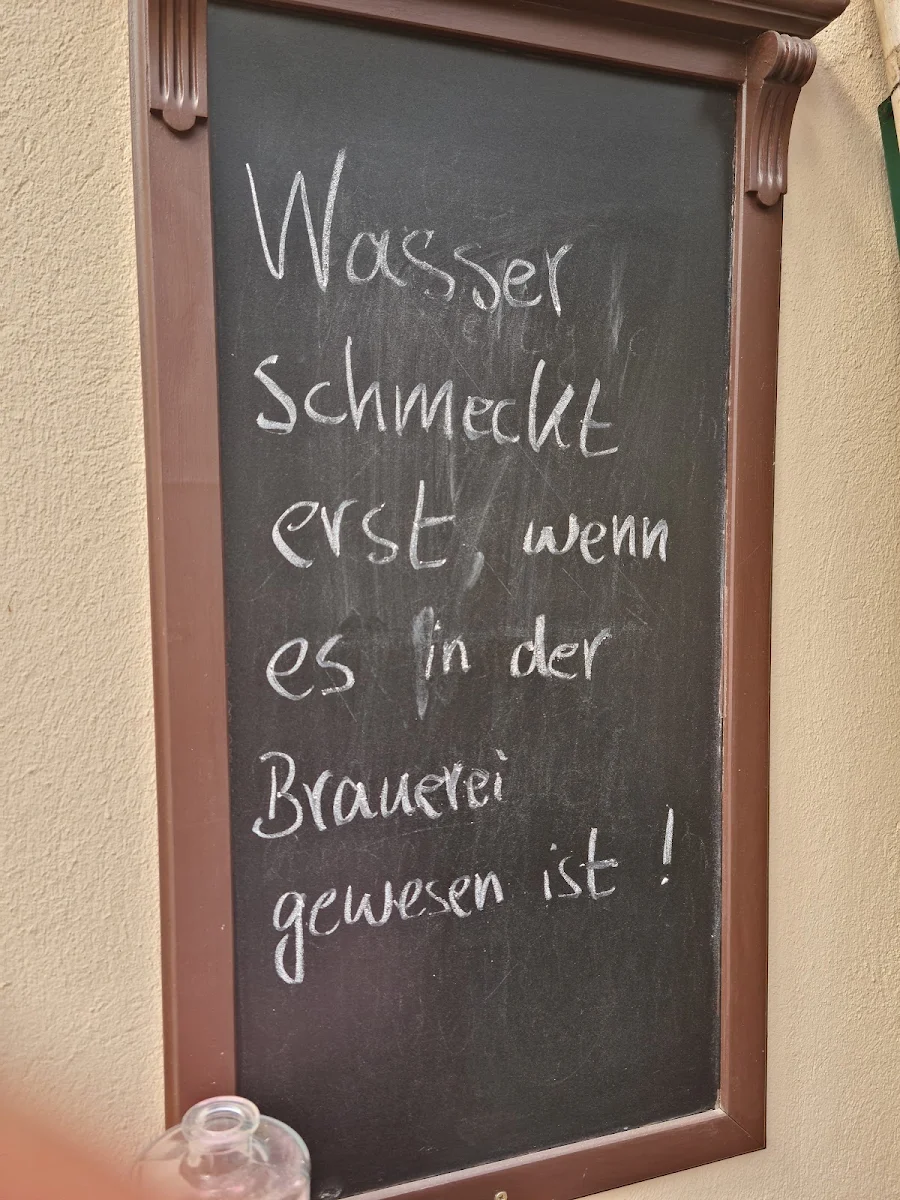 Wasser
schmeckt
erst, wenn
es in der
Brauerei
gewesen ist!